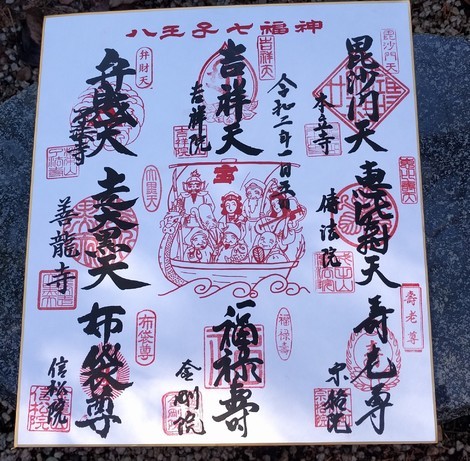 八王子七福神
毘沙門天
毘沙門天
本立寺
令和二年一月
吉祥天
吉祥天
吉祥院
弁財天
弁財天
恵比寿天
傳法院
宝
走大黒天
善龍寺
壽老尊
寿老尊
宗格院
福禄壽
福禄壽
金剛院
布袋尊
布袋尊
信松院